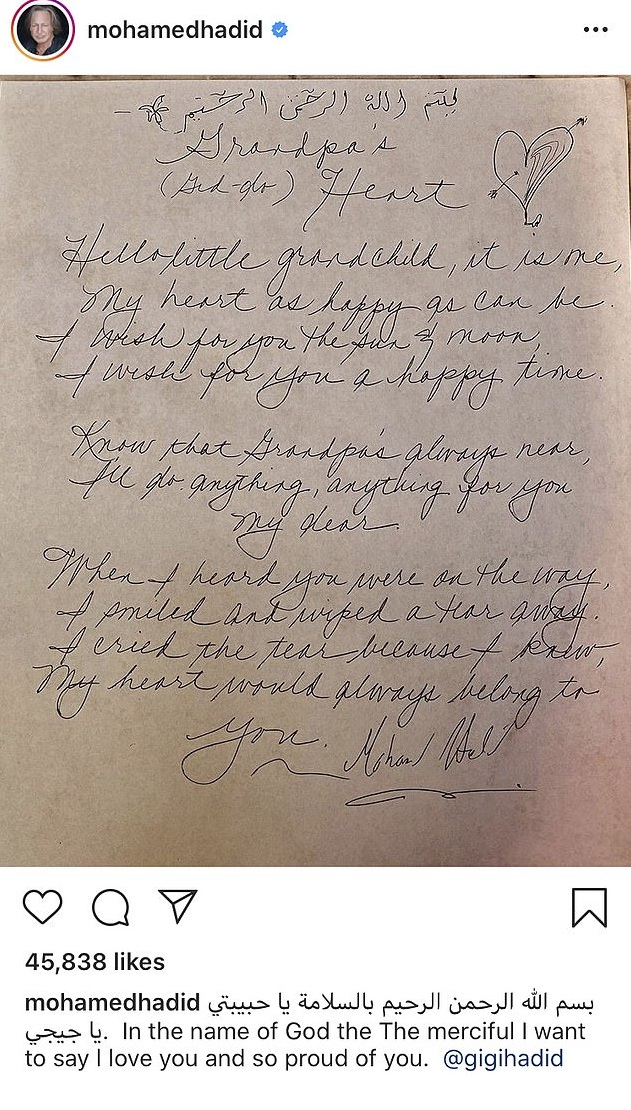 mohamedhadid
بسم الله الرحمن الرحيم
Grandpa's
(Ged-do) Heart
Hello little grandchild, it is me,
My heart as happy as can be.
I wish for you the sun & moon,
I wish for you a happy time.
Know that Grandpa's always near,
I'll do anything, anything for you
my dear.
When I heard you were on the way,
I smiled and wiped a tear away.
I cried the tear because I knew,
My heart would always belong to
you.
45,838 likes
mohamedhadid بسم الله الرحمن الرحيم بالسلامة يا حبيبتي
يا جيجي. In the name of God the The merciful I want
to say I love you and so proud of you. @gigihadid